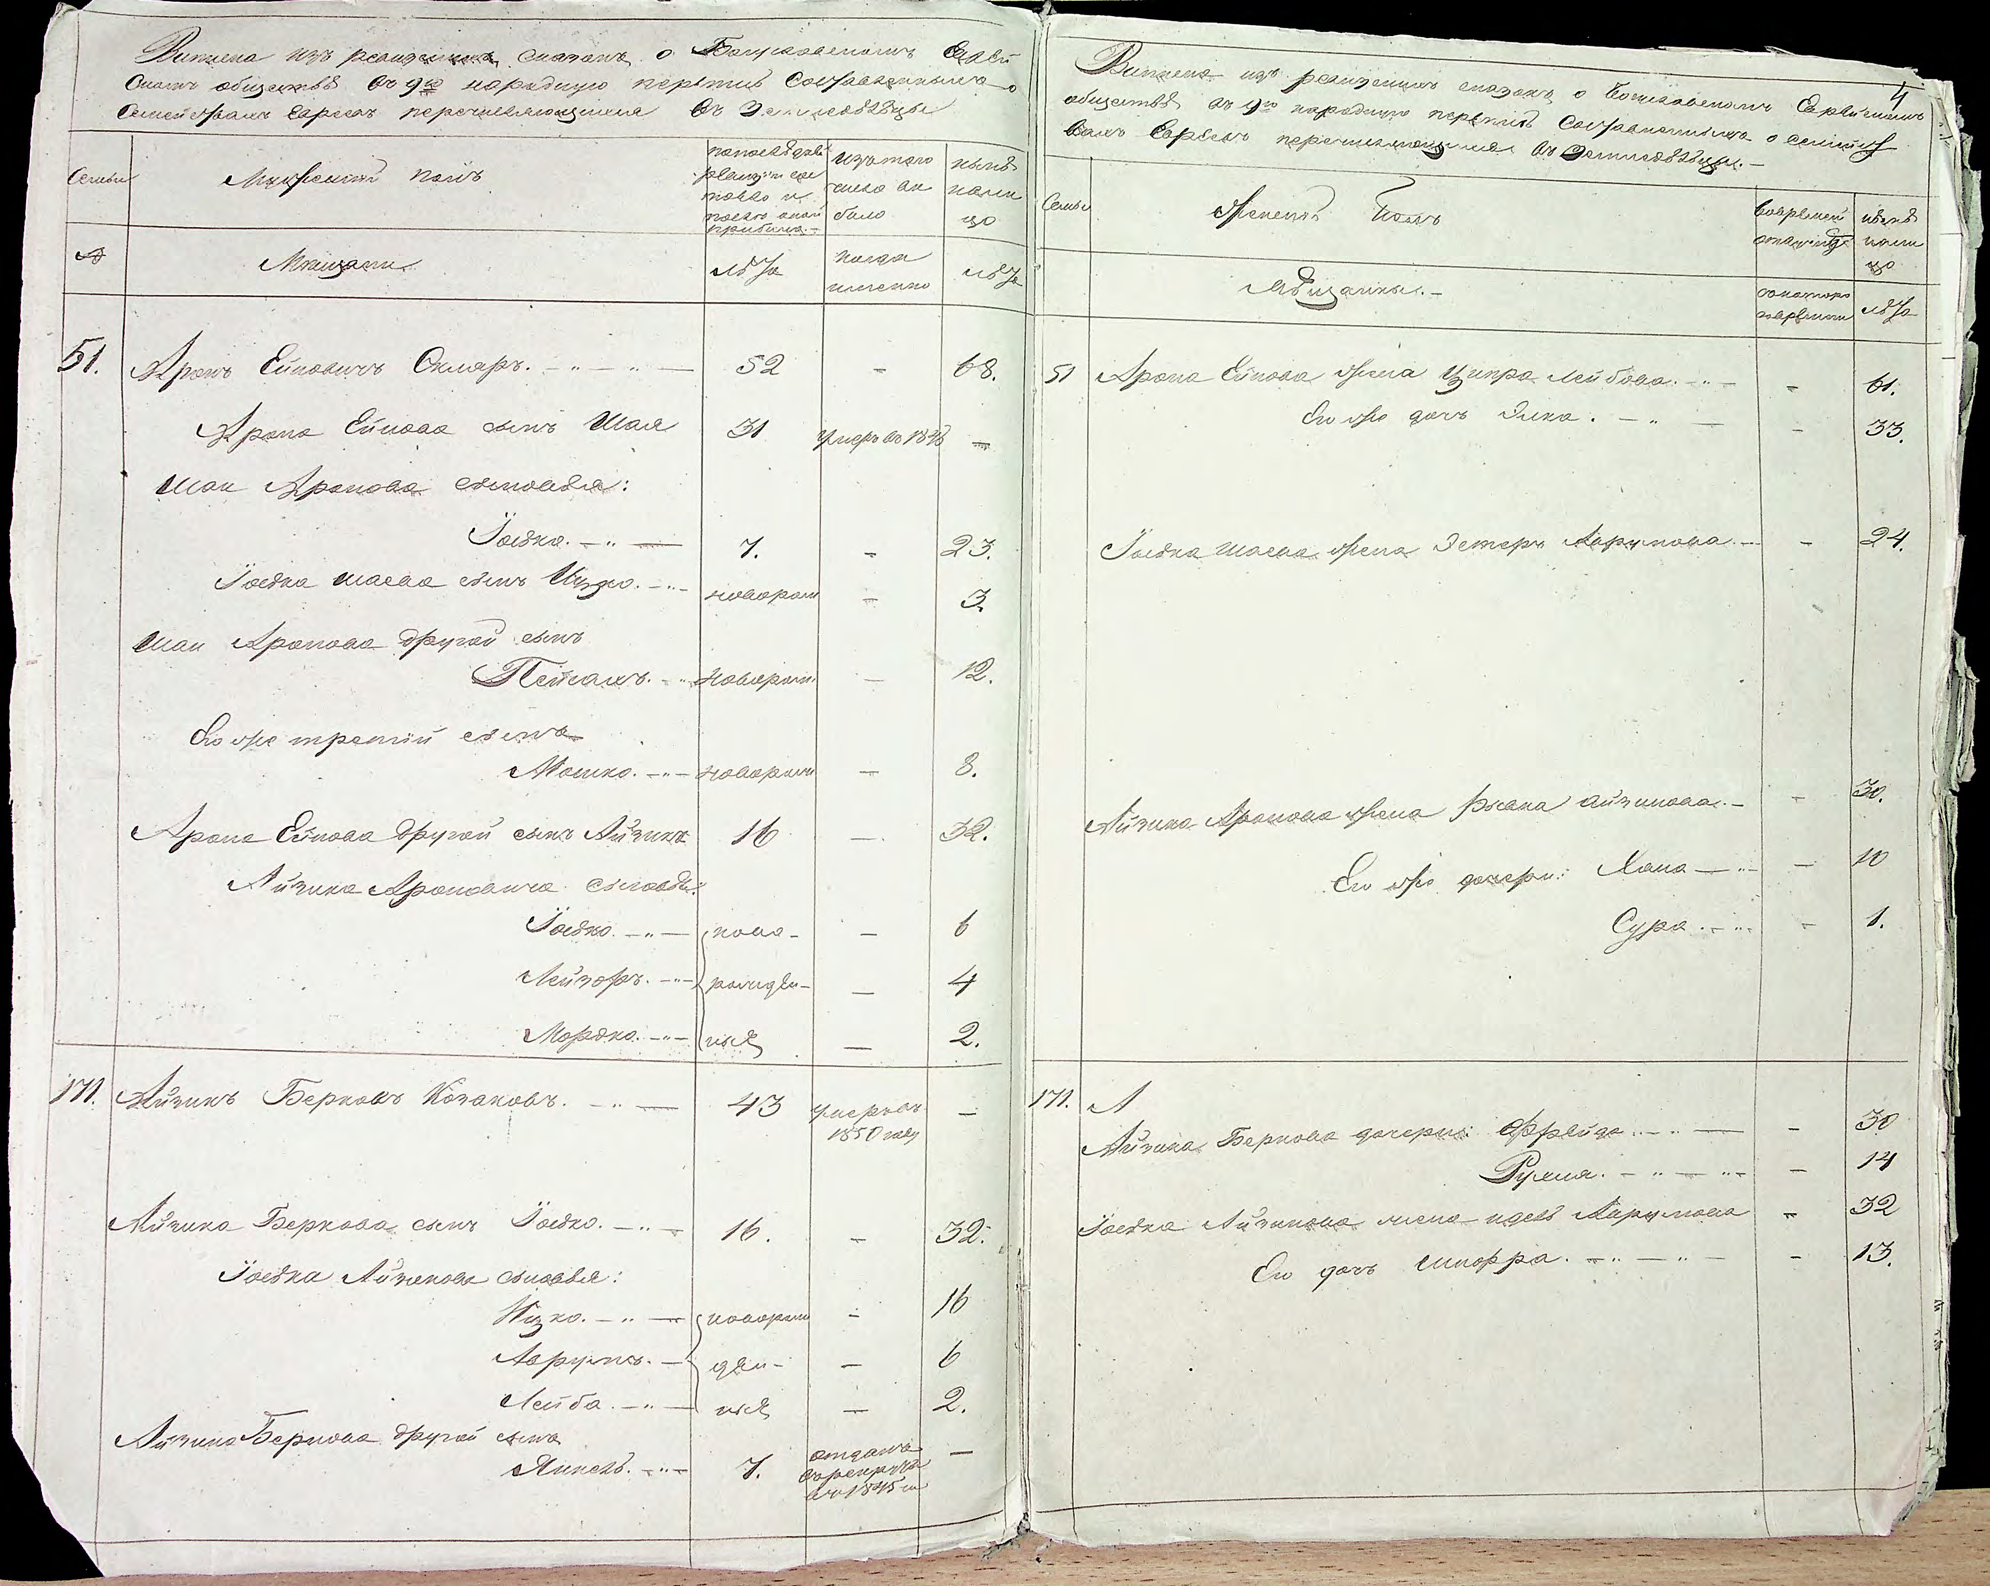 Выписка изъ ревизскихъ сказокъ о Богуславскомъ Еврей
скомъ обществѣ въ 9ую народную перепись Составленныхъ о
Семействахъ Евреевъ перечисляющихся въ Земледѣльцы
Семьи
Мужеской полъ
по последней
ревизіи со
стояло и
послѣ оной
прибыло
изъ того
числа вы
было
нынѣ
нали
цо
№
Мѣщане
лѣта
когда
именно
лѣта
51. Аронъ Ейновичъ Скляръ. 52 - 68.
Арона Ейнова сынъ Шая 31 умеръ въ 18 —
Шаи Аронова сыновья:
Іосько. 7. - 23.
Іоська Шаева сынъ Ицко. новорож - 3.
Шаи Аронова другой сынъ
новорож. - 12.
Его же третій сынъ
Мошко. новорож - 8.
Арона Ейнова другой сынъ Айзикъ 16 - 32.
Айзика Ароновича сыновья:
Іосько. ново- - 6
Лейзоръ. рожден- - 4
Мордко. ные - 2.
171. Айзикъ Берковъ Козаковъ. 43 умеръ въ —
1850 году
Айзика Беркова сынъ Іосько. 16. - 32.
Іоська Айзикова сыновья:
Ицко. новорож - 16
Аврумъ. ден- - 6
Лейба. ные - 2.
Айзика Беркова другой сынъ
Янкель. 7. отданъ —
въ рекруты
въ 1845 го
4
Выписка изъ ревизскихъ сказокъ о Богуславскомъ Еврейскомъ
обществѣ въ 9ую народную перепись Составленныхъ о семейст
вахъ Евреевъ перечисляющихся въ Земледѣльцы.
Семьи
Женской полъ
Во временной
отлучкѣ
нынѣ
нали
цо
Мѣщанки.
съ котораго
времени
лѣта
51 Арона Ейнова жена Ципра Лейбова. - 61.
Его же дочь Элка. - 33.
Іоська Шаева жена Эстеръ Аврумова. - 24.
Айзика Аронова жена Рывка Айзикова. - 30.
Его же дочери: Хана - 10
Сура. - 1.
171. А
Айзика Беркова дочери: Фрейда - 30
Рухля. - 14
Іоська Айзикова жена Идесъ Аврумова - 32
Его дочь Шифра. - 13.